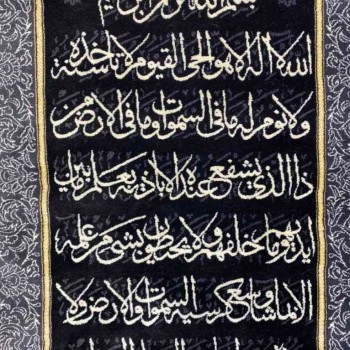 بسم الله الرحمن الرحيم
الله لا اله الا هو الحي القيوم لا تاخذه سنة
ولا نوم له ما في السموات وما في الارض من
ذا الذي يشفع عنده الا باذنه يعلم ما بين
ايديهم وما خلفهم ولا يحيطون بشئ من علمه
الا بما شاء وسع كرسيه السموات والارض ولا